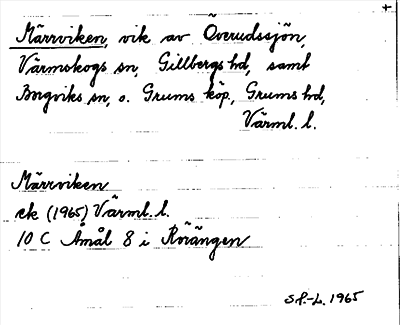 +
Märrviken, vik av Överudssjön,
Värmskogs sn, Gillbergs hd, samt
Borgviks sn, o. Grums köp., Grums hd,
Värml. l.
Märrviken
ek (1965) Värml. l.
10 C Åmål 8 i Rörängen
S.P.-L. 1965